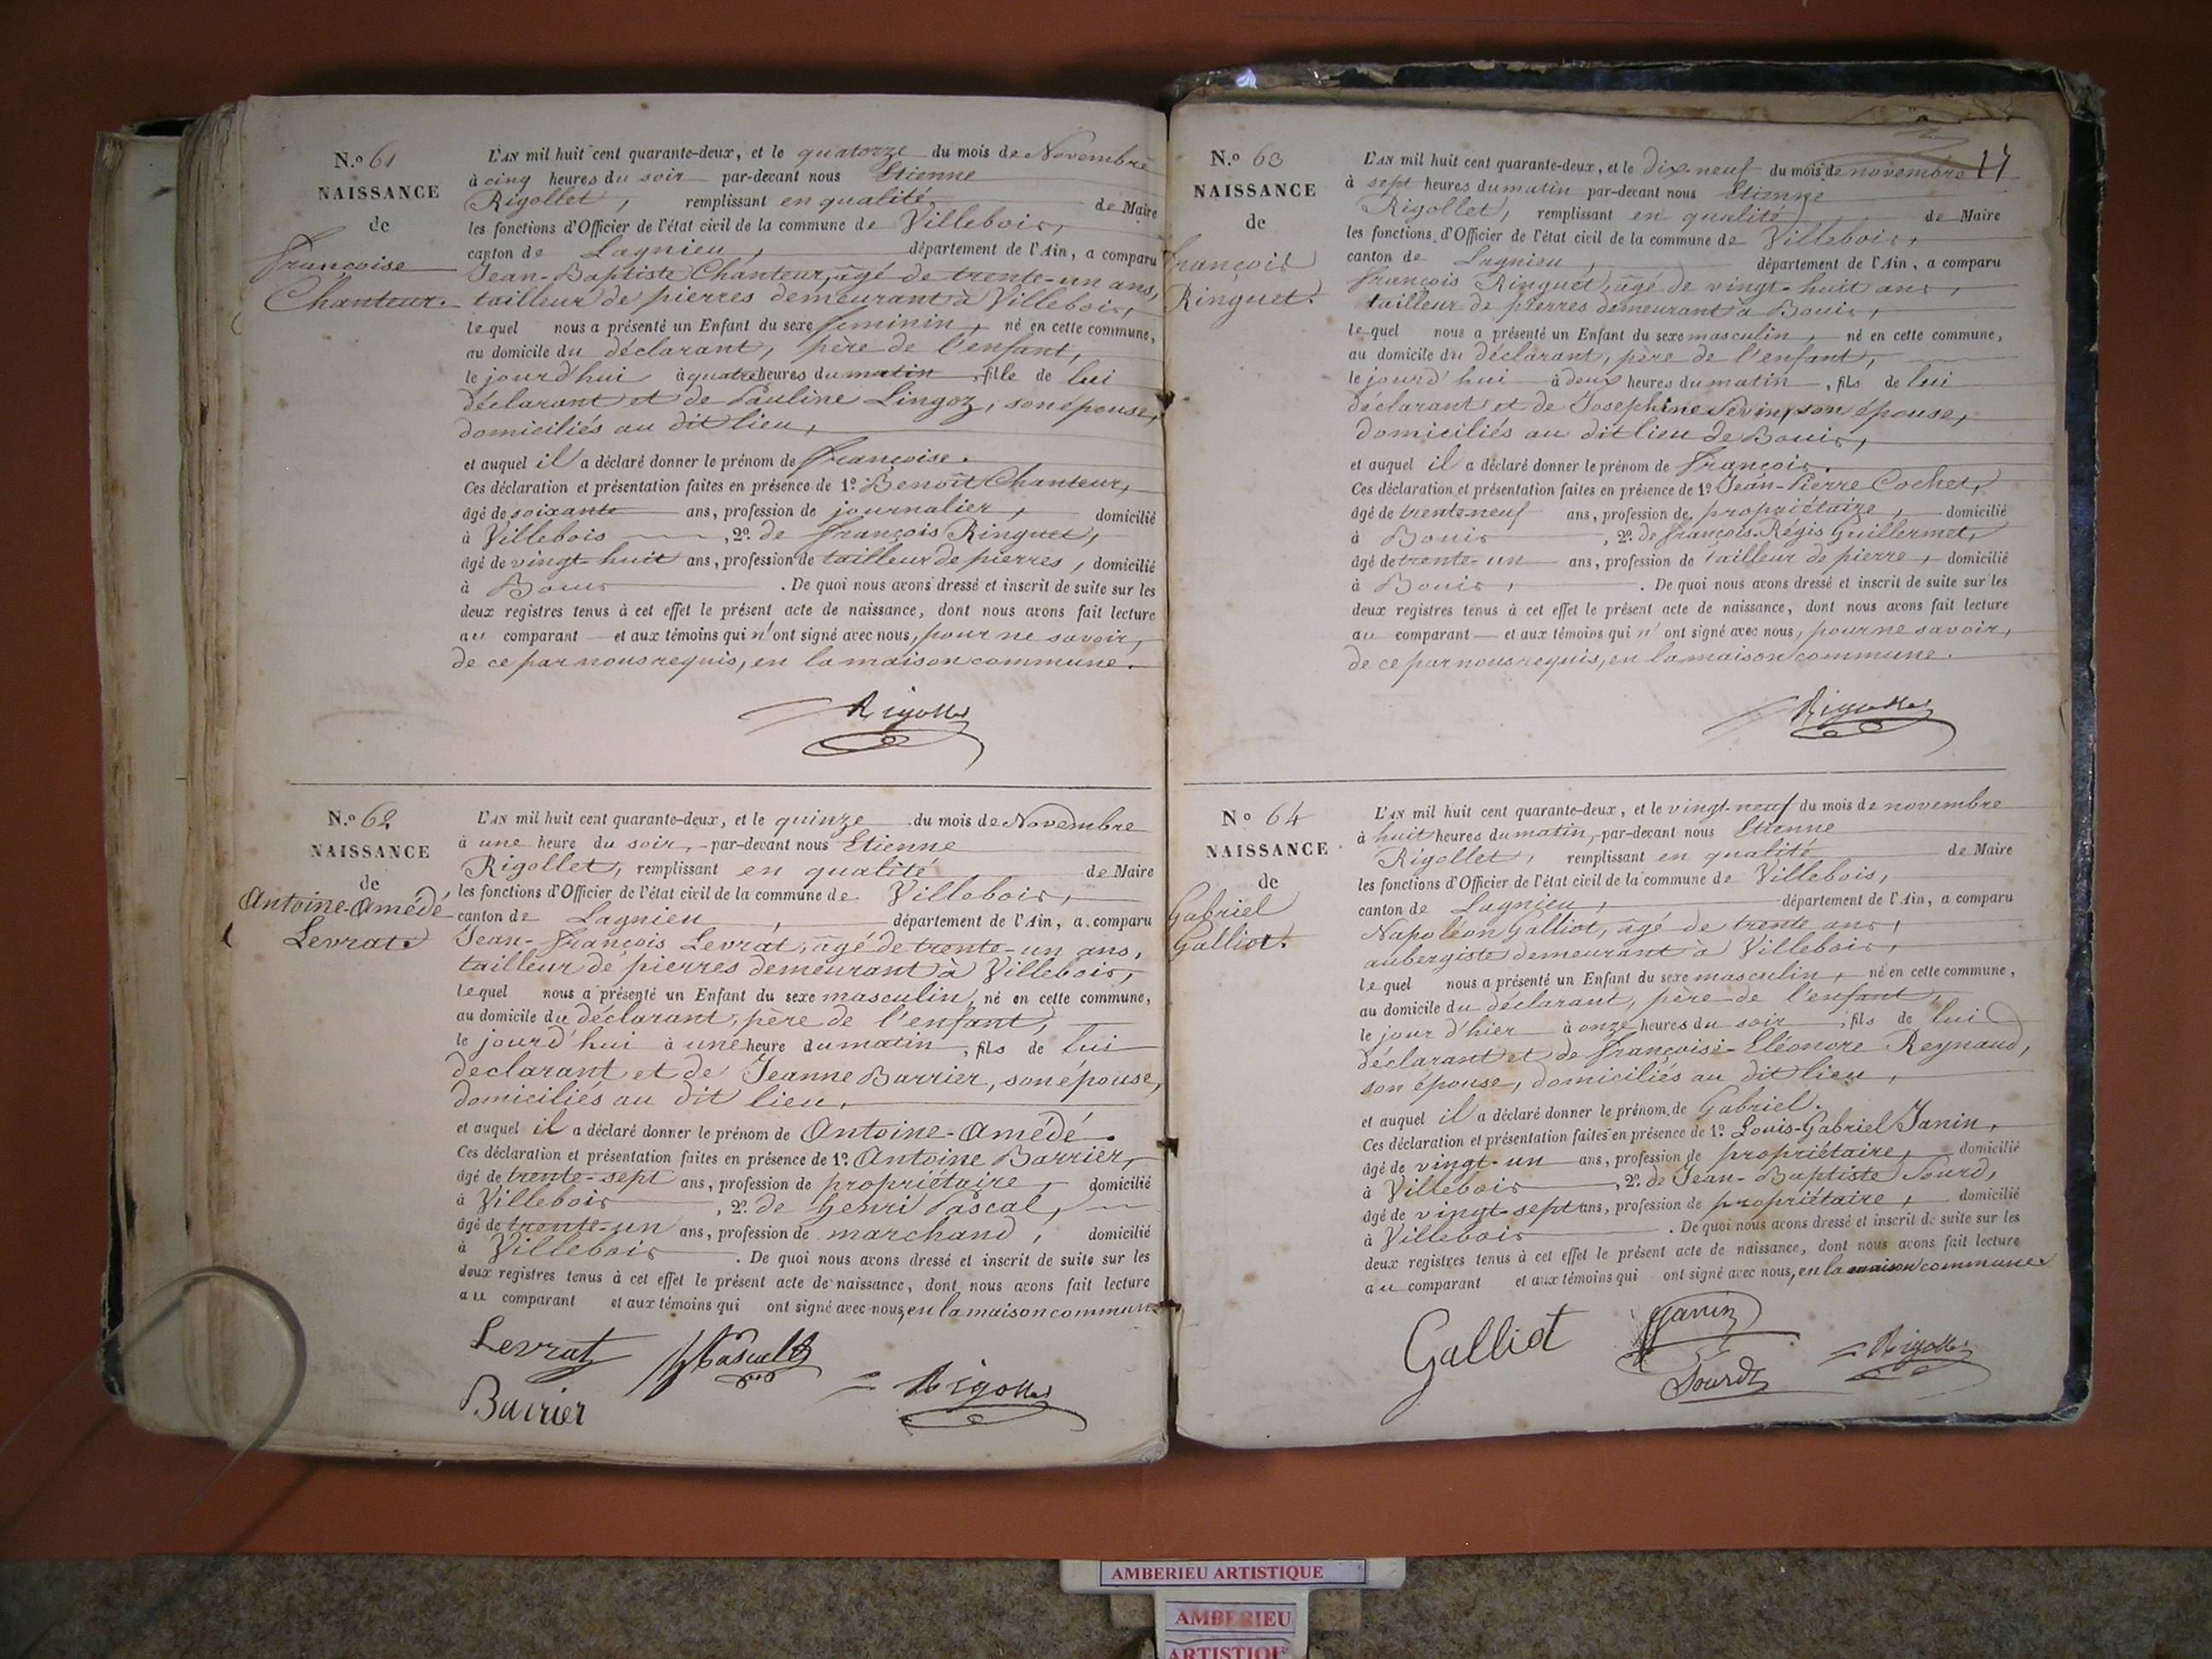 N.o 61
NAISSANCE
de
Françoise
Chanteur.
L'AN mil huit cent quarante-deux, et le quatorze du mois de Novembre
à cinq heures du soir par-devant nous Etienne
Rigollet, remplissant en qualité de Maire
les fonctions d'Officier de l'état civil de la commune de Villebois,
canton de Lagnieu, département de l'Ain, a comparu
Jean-Baptiste Chanteur, âgé de trente-un ans,
tailleur de pierres demeurant à Villebois,
lequel nous a présenté un Enfant du sexe féminin, né en cette commune,
au domicile du déclarant, père de l'enfant,
le jourd'hui à quatre heures du matin, fille de lui
déclarant et de Pauline Lingoz, son épouse,
domiciliés au dit lieu,
et auquel il a déclaré donner le prénom de Françoise.
Ces déclaration et présentation faites en présence de 1º Benoît Chanteur,
âgé de soixante ans, profession de journalier, domicilié
à Villebois, 2º. de François Ringuet,
âgé de vingt-huit ans, profession de tailleur de pierres, domicilié
à Bouis. De quoi nous avons dressé et inscrit de suite sur les
deux registres tenus à cet effet le présent acte de naissance, dont nous avons fait lecture
au comparant et aux témoins qui n'ont signé avec nous, pour ne savoir,
de ce par nous requis, en la maison commune.
Rigollet
N.o 62
NAISSANCE
de
Antoine-Amédé
Levrat.
L'AN mil huit cent quarante-deux, et le quinze du mois de Novembre
à une heure du soir, par-devant nous Etienne
Rigollet, remplissant en qualité de Maire
les fonctions d'Officier de l'état civil de la commune de Villebois,
canton de Lagnieu, département de l'Ain, a comparu
Jean-François Levrat, âgé de trente-un ans,
tailleur de pierres demeurant à Villebois,
lequel nous a présenté un Enfant du sexe masculin, né en cette commune,
au domicile du déclarant, père de l'enfant,
le jourd'hui à une heure du matin, fils de lui
déclarant et de Jeanne Barrier, son épouse,
domiciliés au dit lieu,
et auquel il a déclaré donner le prénom de Antoine-Amédé.
Ces déclaration et présentation faites en présence de 1º. Antoine Barrier,
âgé de trente-sept ans, profession de propriétaire, domicilié
à Villebois, 2º. de Henri Pascal,
âgé de trente-un ans, profession de marchand, domicilié
à Villebois. De quoi nous avons dressé et inscrit de suite sur les
deux registres tenus à cet effet le présent acte de naissance, dont nous avons fait lecture
au comparant et aux témoins qui ont signé avec nous, en la maison commune
Levrat Pascal
Barrier Rigollet
17
N.o 63
NAISSANCE
de
François
Ringuet.
L'AN mil huit cent quarante-deux, et le dix-neuf du mois de novembre
à sept heures du matin par-devant nous Etienne
Rigollet, remplissant en qualité de Maire
les fonctions d'Officier de l'état civil de la commune de Villebois,
canton de Lagnieu, département de l'Ain, a comparu
François Ringuet, âgé de vingt-huit ans,
tailleur de pierres demeurant à Bouis,
lequel nous a présenté un Enfant du sexe masculin, né en cette commune,
au domicile du déclarant, père de l'enfant,
le jourd'hui à deux heures du matin, fils de lui
déclarant et de Josephine son épouse,
domiciliés au dit lieu de Bouis,
et auquel il a déclaré donner le prénom de François.
Ces déclaration et présentation faites en présence de 1º Jean-Pierre Cochet,
âgé de trente-neuf ans, profession de propriétaire, domicilié
à Bouis, 2º. de François-Régis Guillermet,
âgé de trente-un ans, profession de tailleur de pierre, domicilié
à Bouis,. De quoi nous avons dressé et inscrit de suite sur les
deux registres tenus à cet effet le présent acte de naissance, dont nous avons fait lecture
au comparant et aux témoins qui n'ont signé avec nous, pour ne savoir,
de ce par nous requis, en la maison commune.
Rigollet
No 64
NAISSANCE
de
Gabriel
Galliot.
L'AN mil huit cent quarante-deux, et le vingt-neuf du mois de novembre
à huit heures du matin, par-devant nous Etienne
Rigollet, remplissant en qualité de Maire
les fonctions d'Officier de l'état civil de la commune de Villebois,
canton de Lagnieu, département de l'Ain, a comparu
Napoléon Galliot, âgé de trente ans,
aubergiste demeurant à Villebois,
lequel nous a présenté un Enfant du sexe masculin, né en cette commune,
au domicile du déclarant, père de l'enfant,
le jour d'hier à onze heures du soir, fils de lui
déclarant et de Françoise-Eléonore Reynaud,
son épouse, domiciliés au dit lieu,
et auquel il a déclaré donner le prénom de Gabriel.
Ces déclaration et présentation faites en présence de 1º. Louis-Gabriel Janin,
âgé de vingt-un ans, profession de propriétaire, domicilié
à Villebois, 2º. de Jean-Baptiste Sourd,
âgé de vingt-sept ans, profession de propriétaire, domicilié
à Villebois. De quoi nous avons dressé et inscrit de suite sur les
deux registres tenus à cet effet le présent acte de naissance, dont nous avons fait lecture
au comparant et aux témoins qui ont signé avec nous, en la maison commune
Galliot Janin Rigollet
Sourd
AMBERIEU ARTISTIQUE
AMBERIEU
ARTISTIQUE